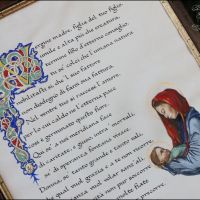 Vergine madre, figlia del tuo figlio,
umile e alta più che creatura,
termine fisso d'etterno consiglio,
tu se' colei che l'umana natura
nobilitasti sì, che 'l suo fattore
non disdegnò di farsi sua fattura.
Nel ventre tuo si raccese l'amore
per lo cui caldo ne l'etterna pace
così è germinato questo fiore.
Qui se' a noi meridiana face
di caritate, e giuso, intra i mortali,
se' di speranza fontana vivace.
Donna, se' tanto grande e tanto vali,
che qual vuol grazia e a te non ricorre,
sua disianza vuol volar sanz'ali.
benignità non pur soccorre
molte fiate
precorre.